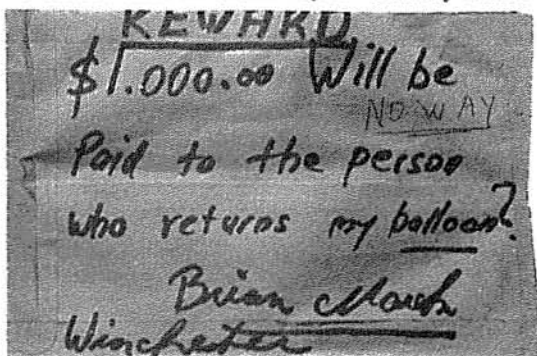 REWARD
$1.000.00 Will be
NO WAY
Paid to the person
who returns my balloon?
Brian Marsh
Winchester